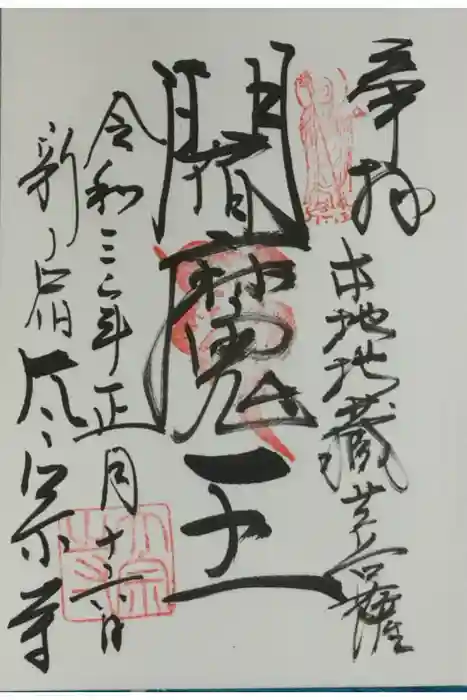 奉拝
本地地蔵菩薩
閻魔王
令和三年正月十六日
新宿太宗寺